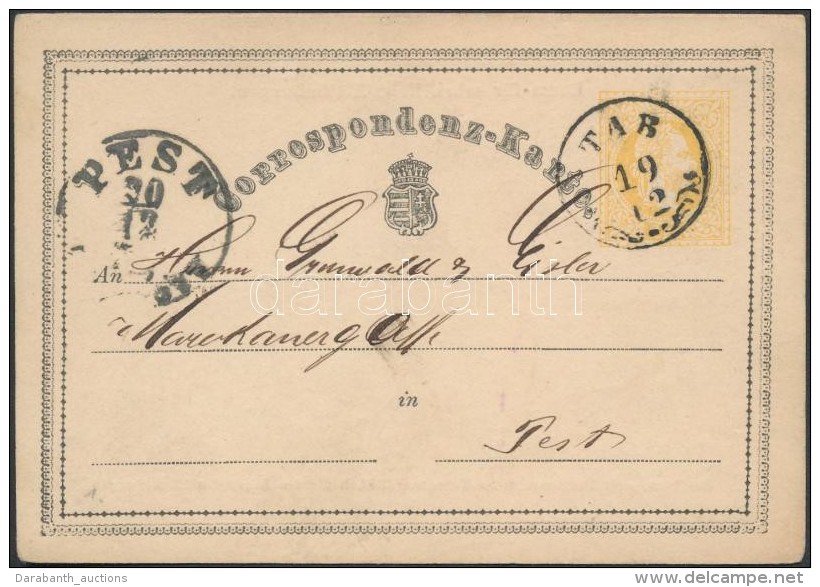 Correspondenz-Karte
TAB
19
12
PEST
20
12
An Herrn Grunwald & Eisler
Marokanergasse
in
Pest
darabanth
Darabanth_auctions
delcampe.net